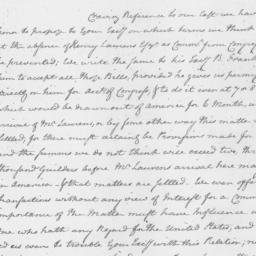 having Reference to our last we have
honor to propose to Your Excy on which terms we think
at the absence of Henry Laurens Esqr as Comr from Congress
be presented; We write the same to his Excy B. Frank
him to accept all those Bills, provided he gives us permi
directly on him for acct of Congress, & to do it even at 7 or 8
which would be drawn out of america for 6 Month, u
arrival of Mr Laurens, or by some other way this matter
settled; for there must certainly be Provision made for
and the summs we do not think will exceed two, th
thousand Guilders before Mr Laurens arrival here ma
in America & that matters are settled. We even offer
transactions without any view of Interest for a Comm
importance of the Matter must have Influence u
one who hath any Regard for the United States, and
ed us even to trouble Your Excy with this Relation, no